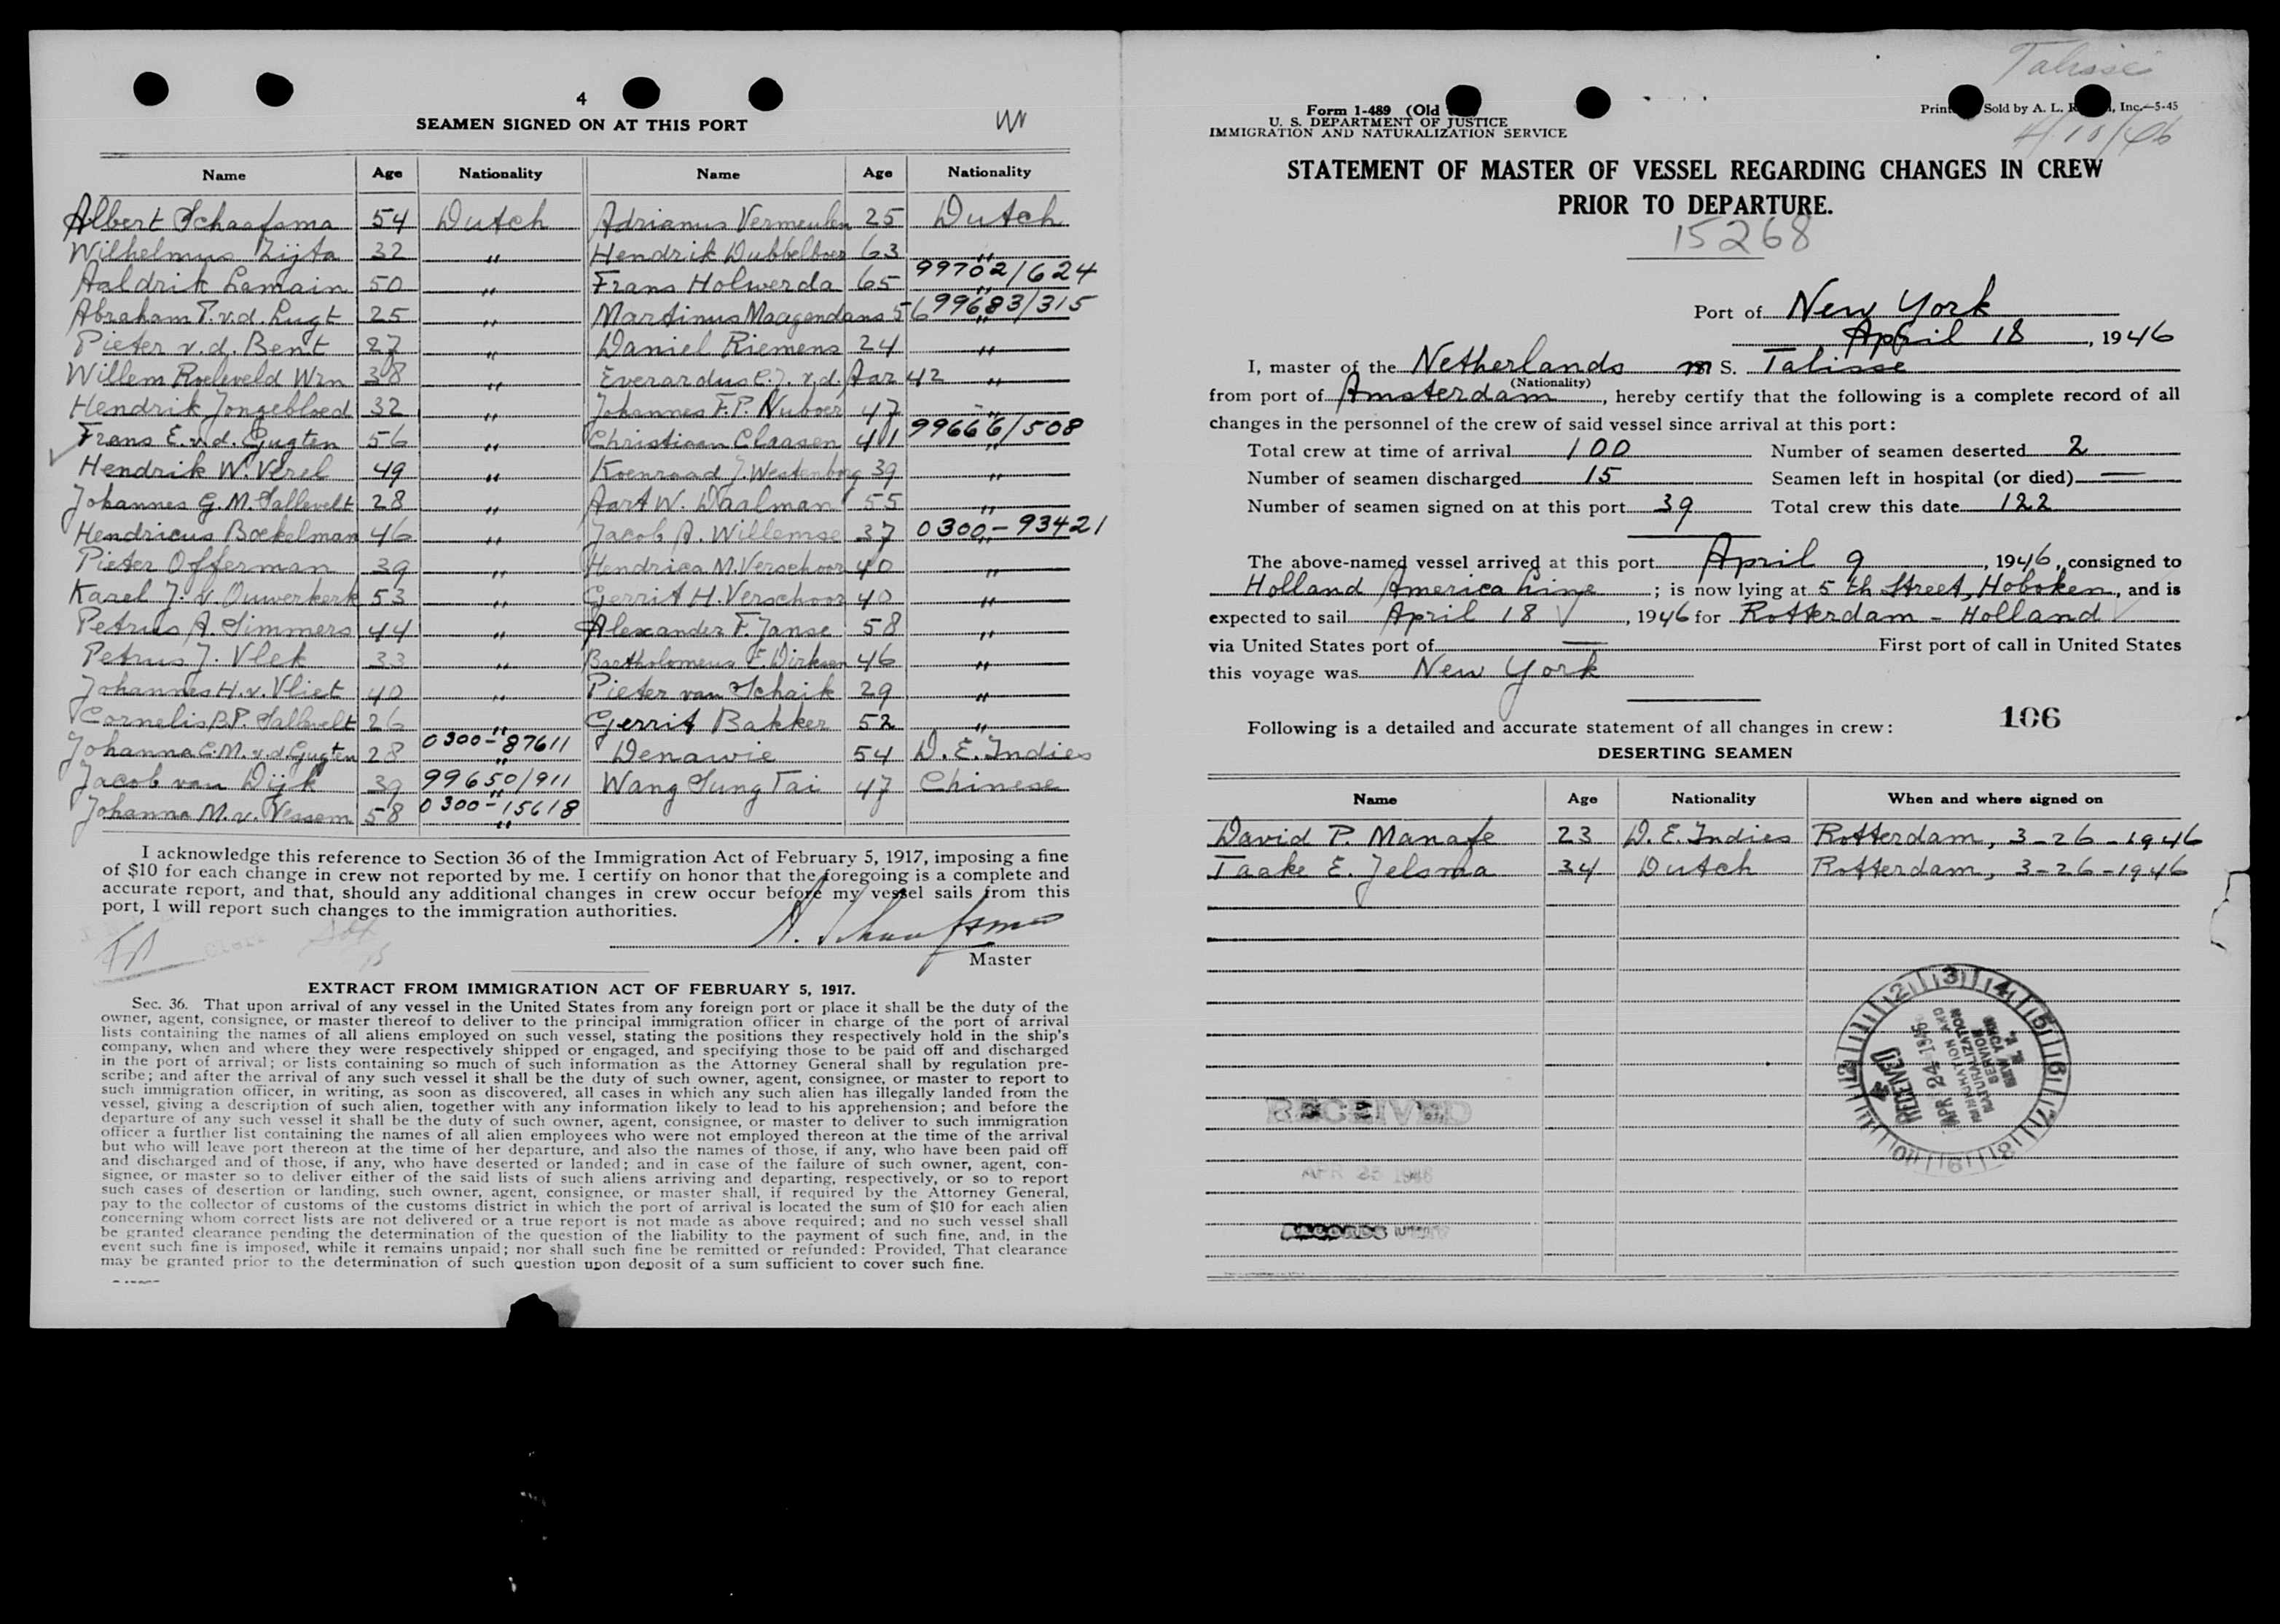 4
SEAMEN SIGNED ON AT THIS PORT
Name Age Nationality Name Age Nationality
Albert Schaafsma 54 Dutch Adrianus Vermeulen 25 Dutch
Wilhelmus Zijta 32 " Hendrik Dubbelboer 63 "
Aaldrik Lamain 50 " Frans Holwerda 65 " 99702/624
Abraham P. v.d. Lugt 25 " Martinus Maagendans 56 " 99683/315
Pieter v.d. Bent 27 " Daniel Riemens 24 "
Willem Roeleveld Wzn 38 " Everardus C.J. v.d. Aar 42 "
Hendrik Jongebloed 32 " Johannes F.P. Nuboer 47 "
Frans E. v.d. Gugten 56 " Christiaan Claasen 41 " 99666/508
Hendrik W. Verel 49 " Koenraad J. Westenborg 39 "
Johannes G.M. Sallevelt 28 " Aart W. Daalman 55 "
Hendricus Boekelman 46 " Jacob A. Willemse 37 " 0300-93421
Pieter Offerman 39 " Hendrica M. Verschoor 40 "
Karel J. v. Ouwerkerk 53 " Gerrit H. Verschoor 40 "
Petrus A. Simmers 44 " Alexander F. Janse 58 "
Petrus J. Vlek 33 " Bartholomeus E. Dirksen 46 "
Johannes H. v. Vliet 40 " Pieter van Schaik 29 "
Cornelis P.P. Sallevelt 26 " Gerrit Bakker 52 "
Johanna C.M. v.d. Gugten 28 " 0300-87611 Denawie 54 D.E. Indies
Jacob van Dijk 39 " 99650/911 Wang Sung Tai 47 Chinese
Johanna M. v. Vessem 58 " 0300-15618
I acknowledge this reference to Section 36 of the Immigration Act of February 5, 1917, imposing a fine
of $10 for each change in crew not reported by me. I certify on honor that the foregoing is a complete and
accurate report, and that, should any additional changes in crew occur before my vessel sails from this
port, I will report such changes to the immigration authorities.
A. Schaafsma
Master
EXTRACT FROM IMMIGRATION ACT OF FEBRUARY 5, 1917.
Sec. 36. That upon arrival of any vessel in the United States from any foreign port or place it shall be the duty of the
owner, agent, consignee, or master thereof to deliver to the principal immigration officer in charge of the port of arrival
lists containing the names of all aliens employed on such vessel, stating the positions they respectively hold in the ship's
company, when and where they were respectively shipped or engaged, and specifying those to be paid off and discharged
in the port of arrival; or lists containing so much of such information as the Attorney General shall by regulation pre-
scribe; and after the arrival of any such vessel it shall be the duty of such owner, agent, consignee, or master to report to
such immigration officer, in writing, as soon as discovered, all cases in which any such alien has illegally landed from the
vessel, giving a description of such alien, together with any information likely to lead to his apprehension; and before the
departure of any such vessel it shall be the duty of such owner, agent, consignee, or master to deliver to such immigration
officer a further list containing the names of all alien employees who were not employed thereon at the time of the arrival
but who will leave port thereon at the time of her departure, and also the names of those, if any, who have been paid off
and discharged and of those, if any, who have deserted or landed; and in case of the failure of such owner, agent, con-
signee, or master so to deliver either of the said lists of such aliens arriving and departing, respectively, or so to report
such cases of desertion or landing, such owner, agent, consignee, or master shall, if required by the Attorney General,
pay to the collector of customs of the customs district in which the port of arrival is located the sum of $10 for each alien
concerning whom correct lists are not delivered or a true report is not made as above required; and no such vessel shall
be granted clearance pending the determination of the question of the liability to the payment of such fine, and, in the
event such fine is imposed, while it remains unpaid; nor shall such fine be remitted or refunded: Provided, That clearance
may be granted prior to the determination of such question upon deposit of a sum sufficient to cover such fine.
Talisse
4/18/46
Form I-489 (Old
U. S. DEPARTMENT OF JUSTICE
IMMIGRATION AND NATURALIZATION SERVICE
Sold by A. L. Inc.—5-45
STATEMENT OF MASTER OF VESSEL REGARDING CHANGES IN CREW
PRIOR TO DEPARTURE.
15268
Port of New York
April 18, 1946
I, master of the Netherlands m S. Talisse
(Nationality)
from port of Amsterdam, hereby certify that the following is a complete record of all
changes in the personnel of the crew of said vessel since arrival at this port:
Total crew at time of arrival 100 Number of seamen deserted 2
Number of seamen discharged 15 Seamen left in hospital (or died) —
Number of seamen signed on at this port 39 Total crew this date 122
The above-named vessel arrived at this port April 9, 1946, consigned to
Holland America Line; is now lying at 5th Street, Hoboken, and is
expected to sail April 18, 1946 for Rotterdam - Holland
via United States port of — First port of call in United States
this voyage was New York
106
Following is a detailed and accurate statement of all changes in crew:
DESERTING SEAMEN
Name Age Nationality When and where signed on
David P. Manafe 23 D.E. Indies Rotterdam, 3-26-1946
Taake E. Jelsma 34 Dutch Rotterdam, 3-26-1946
RECEIVED
APR 24 1946
IMMIGRATION AND
NATURALIZATION
SERVICE
NEW YORK
RECEIVED
APR 25 1946
RECORDS